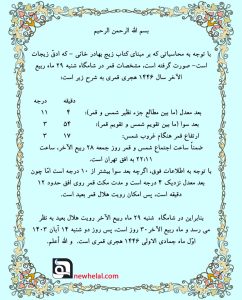 بسم الله الرحمن الرحیم
با توجه به محاسباتی که بر مبنای کتاب زیج بهادر خانی - که ادقّ زیجات
است- صورت گرفته است، مشخصات قمر در شامگاه شنبه ۲۹ ماه ربیع
الآخر سال ۱۴۴۶ هجری قمری به شرح زیر است:
دقیقه درجه
بعد معدل (ما بین مطالع جزء نظیر شمس و قمر): ۴ ۱۱
بعد سوا (ما بین تقویم شمس و تقویم قمر): ۵۴ ۳
ارتفاع قمر هنگام غروب شمس: ۱۷ ۳
ضمناً ساعت اجتماع شمس و قمر روز جمعه ۲۸ ربیع الآخر، ساعت
۲۲:۱۱ به افق تهران است.
با توجه به اطلاعات فوق، اگرچه بعد سوا بیشتر از ۱۰ درجه است امّا چون
بعد معدل نزدیک ۴ درجه است و مدت مکث قمر روی افق حدود ۱۲
دقیقه است، پس امکان رؤیت هلال قمر بعید است.
بنابراین در شامگاه شنبه ۲۹ ماه ربیع الآخر رویت هلال بعید به نظر
می رسد و ماه ربیع الآخر ۳۰ روز است، پس روز دو شنبه ۱۴ آبان ۱۴۰۳
اوّل ماه جمادی الاولی ۱۴۴۶ هجری قمری است. و الله أعلم.
newhelal.com